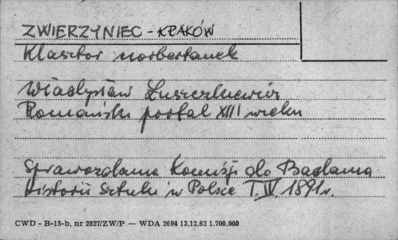 ZWIERZYNIEC - KRAKÓW
Klasztor norbertanek
Władysław Łuszczkiewicz
Romański portal XIII wieku
Sprawozdania Komisji do Badania
Historii Sztuki w Polsce T. IV 1891r.
CWD - B-15-b, nr 2827/ZW/P — WDA 2694 13.12.62 1.700.000